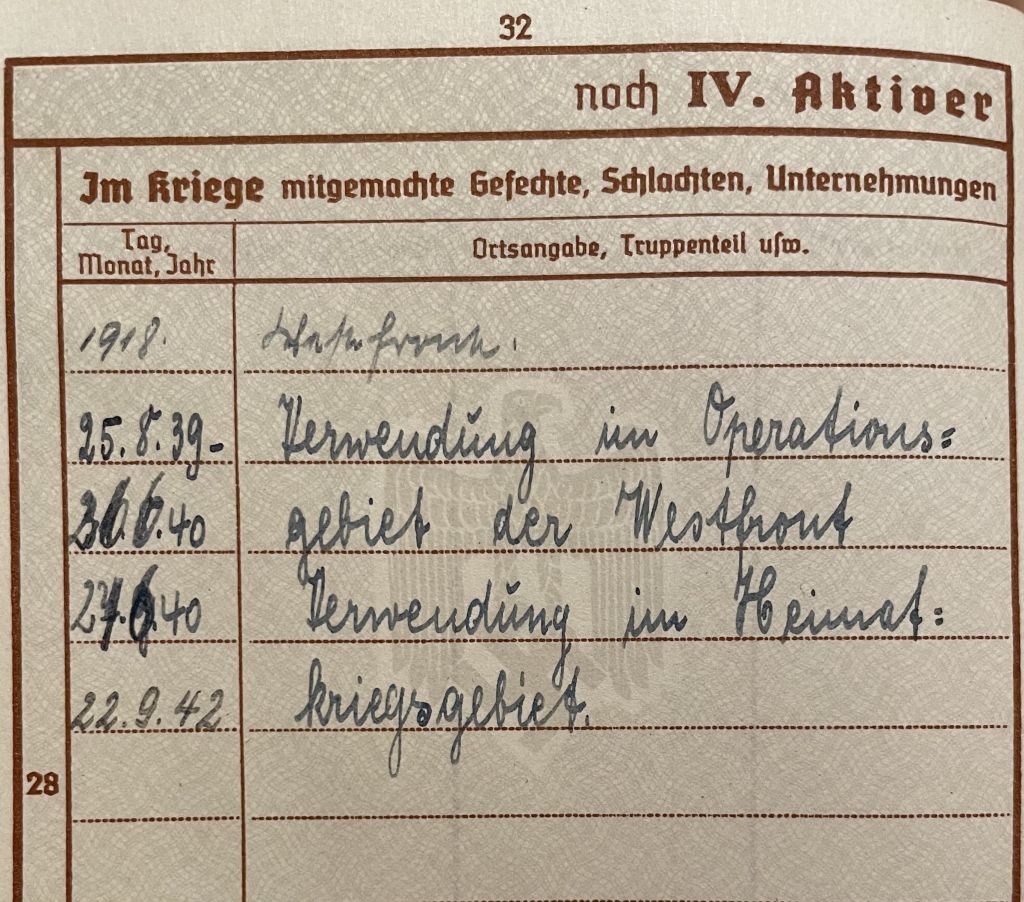 32
noch IV. Aktiver
Im Kriege mitgemachte Gefechte, Schlachten, Unternehmungen
Tag, Monat, Jahr
Ortsangabe, Truppenteil usw.
1918. Westfront.
25.8.39- Verwendung im Operations=
6.40 gebiet der Westfront
40 Verwendung im Heimat=
22.9.42 kriegsgebiet.
28